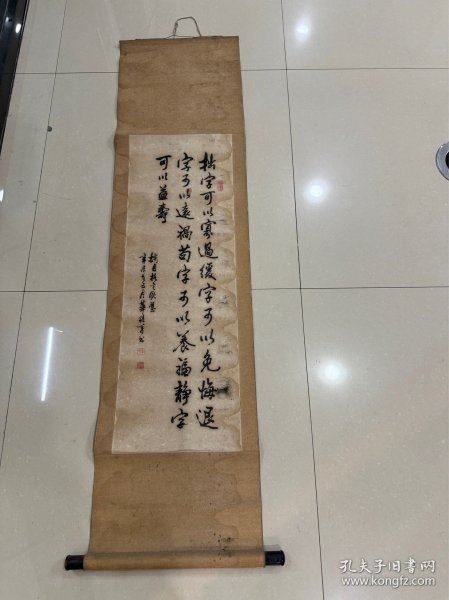 拙字可以寡過緩字可以免悔退
字可以遠禍苟字可以養福靜字
可以益壽
摘自格言聯璧
孔夫子旧书网
www.kongfz.com